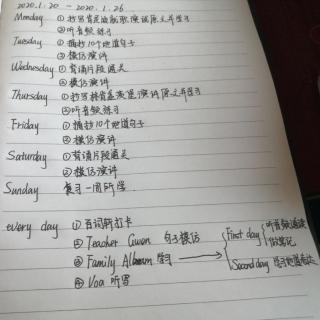 2020.1.20 - 2020.1.26
Monday ①抄写肯尼迪就职演讲原文并学习
②听音频练习
Tuesday ①摘抄10个地道句子
②模仿演讲
Wednesday ①背诵片段通关
②模仿演讲
Thursday ①抄写演讲原文并学习
②听音频练习
Friday ①摘抄10个地道句子
②模仿演讲
Saturday ①背诵片段通关
②模仿演讲
Sunday 复习一周所学
every day ①百词斩打卡
②Teacher Gwen 句子模仿
③Family Album 学习 → First day 听音频 做笔记
Second day 学习地道表达
④Voa 听写